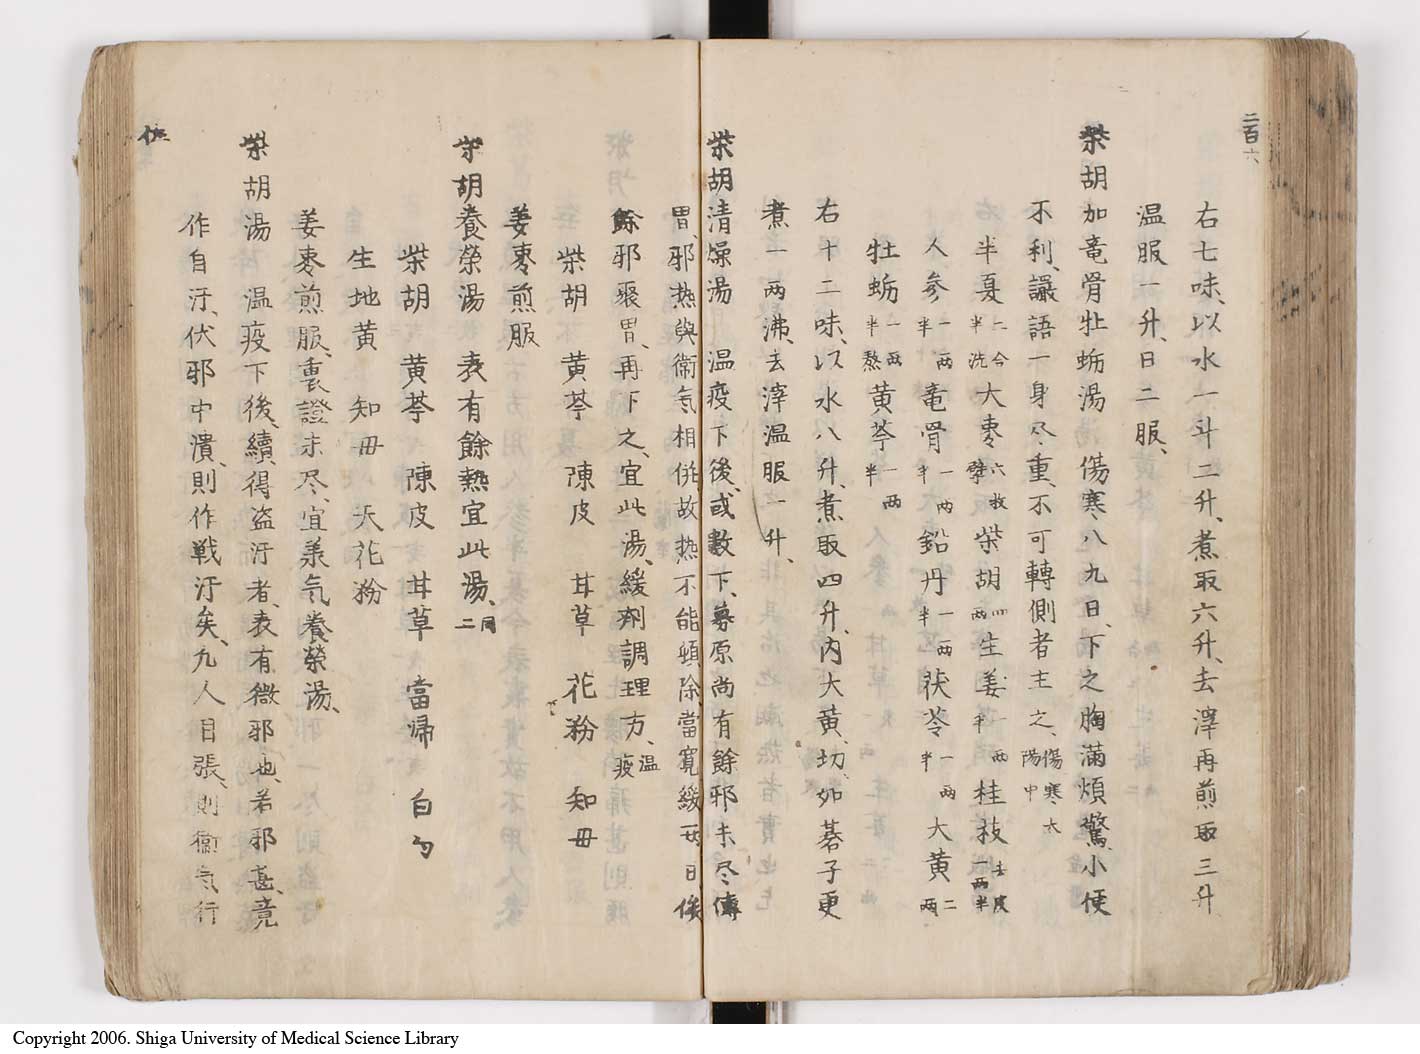 二百六
右七味、以水一斗二升、煮取六升、去滓再煎取三升
温服一升、日二服、
柴胡加竜骨牡蛎湯 傷寒八九日、下之胸滿煩驚、小便
不利、讝語一身尽重、不可轉側者主之、傷寒太陽中
半夏二合半洗 大棗六枚擘 柴胡四両 生姜一両半 桂枝去皮一両半
人参一両半 竜骨一両半 鉛丹一両半 茯苓一両半 大黄二両
牡蛎一両半熬 黄芩一両半
右十二味、以水八升、煮取四升、内大黄、切如碁子更
煮一両沸、去滓温服一升、
柴胡清燥湯 温疫下後、或數下、募原尚有餘邪未尽傳
胃、邪热與衞気相併、故热不能頓除、當寛緩両日俟
餘邪聚胃、再下之、宜此湯、緩剤調理方、温疫
柴胡 黄芩 陳皮 甘草 花粉 知毋
姜棗煎服
柴胡養榮湯 表有餘熱宜此湯、同二
柴胡 黄芩 陳皮 甘草 當帰 白匀
生地黄 知毋 天花粉
姜棗煎服、裏證未尽、宜義気養榮湯、
柴胡湯 温疫下後、續得盗汗者、表有微邪也、若邪甚、竟
作自汗、伏邪中潰、則作戦汗矣、凢人目張、則衞気行